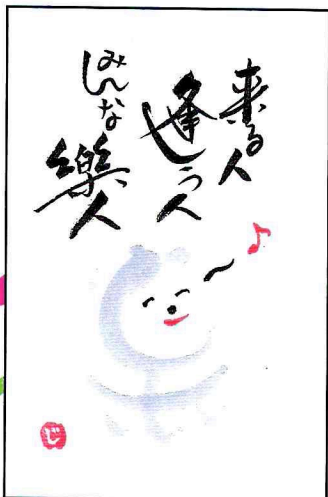 来る人
逢う人
みんな樂人
じ